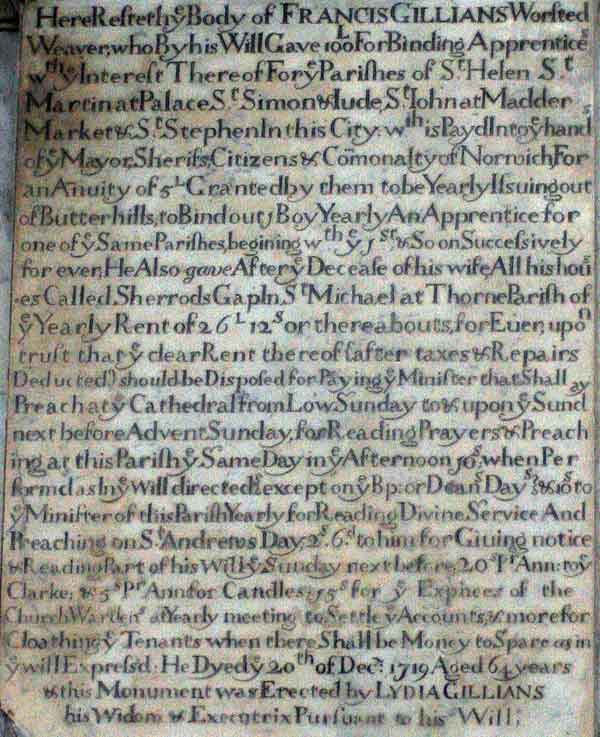 Here Resteth yͤ Body of FRANCIS GILLIANS Worsted
Weaver, who By his Will Gave 100ᴸ For Binding Apprentices
wᵗʰ yͤ Interest Thereof For yͤ Parishes of Sᵗ Helen Sᵗ
Martin at Palace Sᵗ Simon & Iude, Sᵗ Iohn at Madder
Market & Sᵗ Stephen In this City. wᵗʰ is Payd Into yͤ hands
of yͤ Mayor, Sherifs, Citizens & Comonalty of Norwich For
an Anuity of 5ᴸ Granted by them to be Yearly Issuing out
of Butterhills, to Bind out 1 Boy Yearly An Apprentice for
one of yͤ Same Parishes, begining wᵗʰ yͤ 1ˢᵗ & So on Successively
for ever, He Also gave After yͤ Decease of his wife, All his hou
-es Called, Sherrods Gap In, Sᵗ Michael at Thorne Parish of
yͤ Yearly Rent of 26ᴸ 12ˢ or thereabouts, for Euer, upoⁿ
trust that yͤ clear Rent thereof (after taxes & Repairs
Deducted) should be Disposed for Paying yͤ Minister that Shall
Preach at yͤ Cathedral from Low Sunday to & upon yͤ Sundᵃʸ
next before Advent Sunday, for Reading Prayers & Preach
ing at this Parish yͤ Same Day in yͤ Afternoon 10ˢ, when Per
formd as In yͤ Will directed, except on yͤ Bp: or Deanˢ Dayˢ, & 10ˢ to
yͤ Minister of this Parish Yearly for Reading Divine Service And
Preaching on Sᵗ Andrews Day, 2ˢ. 6ᵈ to him for Giuing notice
& Reading Part of his Will yͤ Sunday next before, 20ˢ Pʳ Ann: to yͤ
Clarke; & 5ˢ Pʳ Ann for Candles; 15ˢ for yͤ Expnces of the
Church Wardenˢ at Yearly meeting to Settle yͤ Accounts, & more for
Cloathing yͤ Tenants when there Shall be Money to Spare as in
yͤ will Expressd: He Dyed yͤ 20ᵗʰ of Decʳ: 1719 Aged 64 years
& this Monument was Erected by LYDIA GILLIANS
his Widow & Executrix Pursuant to his Will;